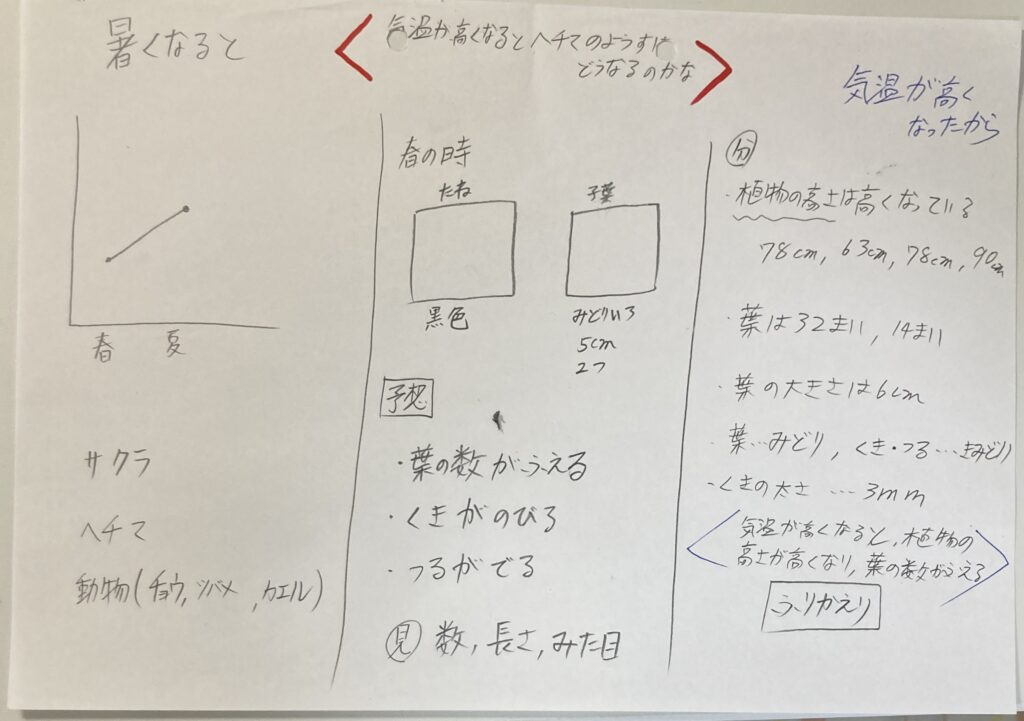 暑くなると
気温が高くなるとヘチマのようすは
どうなるのかな
気温が高く
なったから
春 夏
サクラ
ヘチマ
動物(チョウ,ツバメ,カエル)
春の時
たね
黒色
子葉
みどりいろ
5cm
2つ
予想
・葉の数がふえる
・くきがのびる
・つるがでる
見 数,長さ,みた目
分
・植物の高さは高くなっている
78cm, 63cm, 78cm, 90cm
・葉は32まい, 14まい
・葉の大きさは6cm
・葉…みどり, くき・つる…きみどり
・くきの太さ…3mm
気温が高くなると,植物の
高さが高くなり,葉の数がふえる
ふりかえり